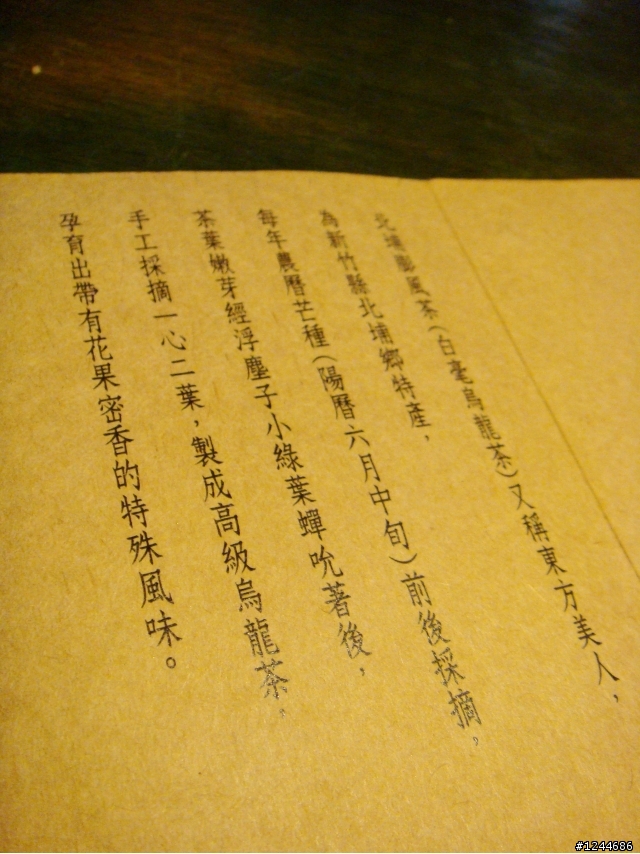 北埔膨風茶(白毫烏龍茶)又稱東方美人，
為新竹縣北埔鄉特產，
每年農曆芒種(陽曆六月中旬)前後採摘，
茶葉嫩芽經浮塵子小綠葉蟬吮著後，
手工採摘一心二葉，製成高級烏龍茶，
孕育出帶有花果密香的特殊風味。
#1244686